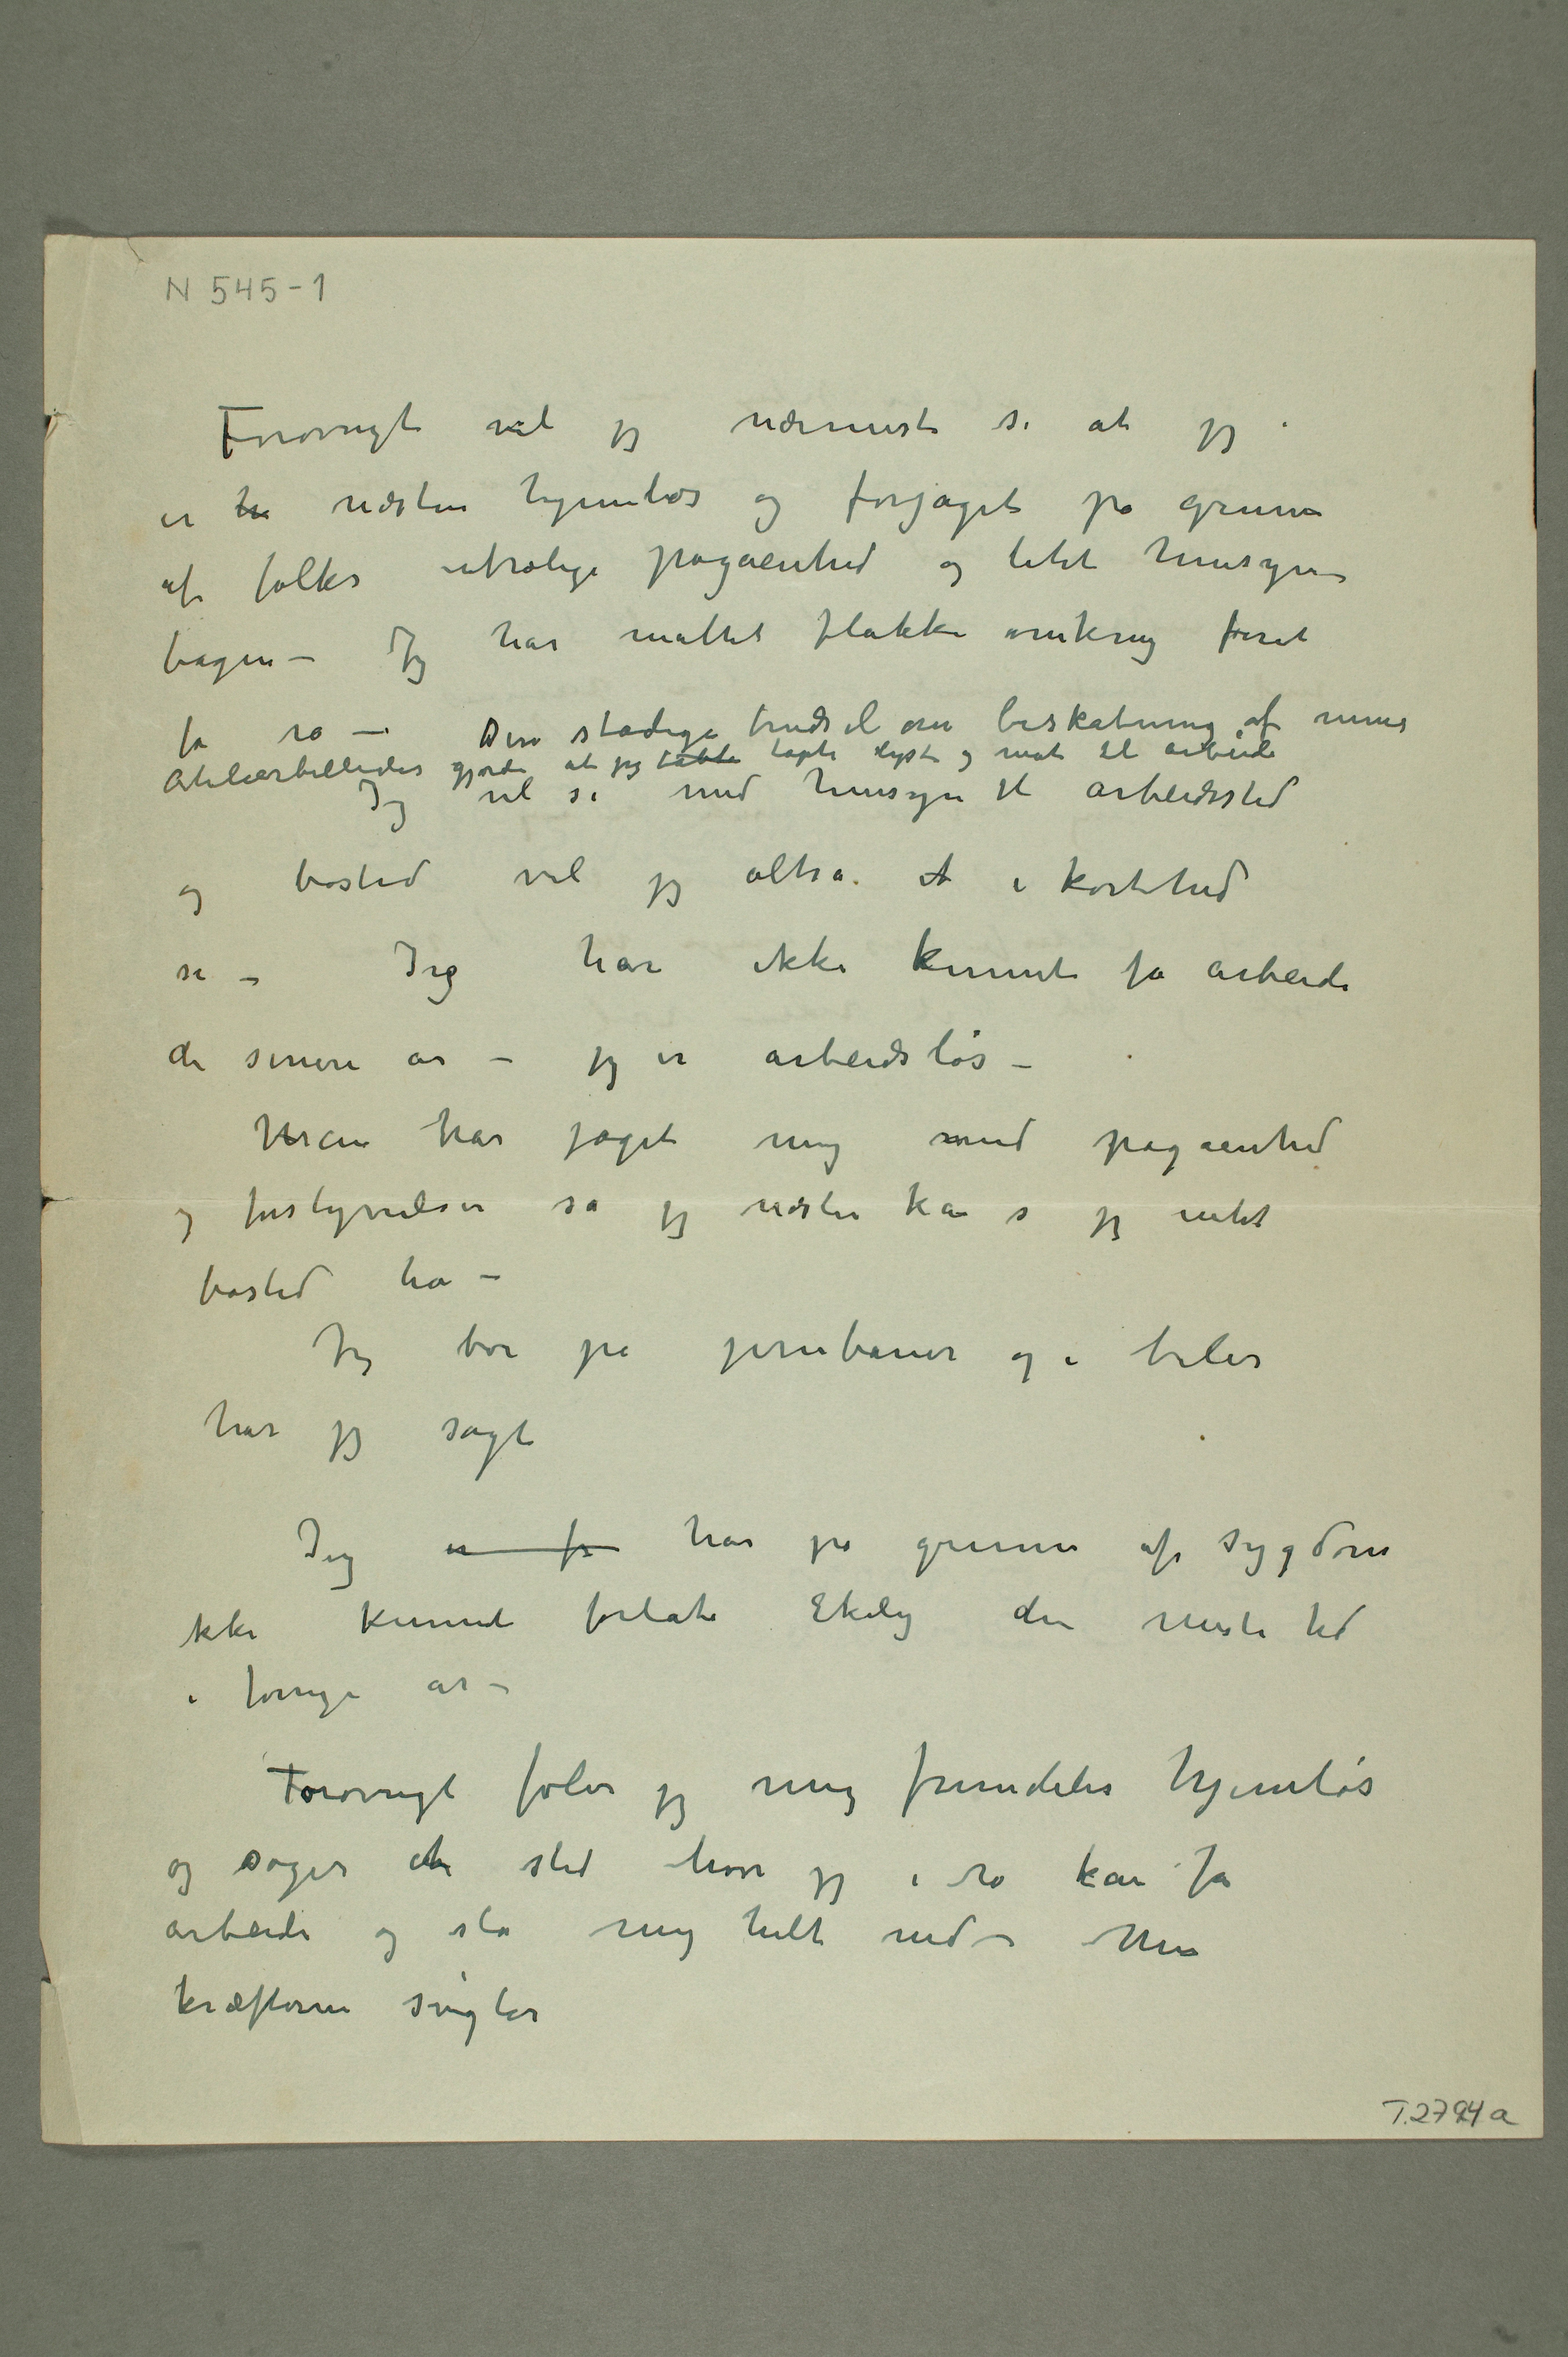 N 545-1
Forøvrigt vil jeg nærmest si at jeg
er næsten hjemløs og forjaget på grunn
af folks utrolige pågåenhed og litet hensyn
tagen – Jeg har måttet flakke omkring foråt
få ro – Den stadige trudsel om beskatning af mine
Atelierbilleder gjorde at jeg tabte tapte lyst og mot til arbeide
Jeg vil si med hensyn til arbeidssted
og bosted vil jeg altså i korthed
si – Jeg har ikke kunnet få arbeide
de senere år – jeg er arbeidsløs –
Man har jaget mig med pågåenhed
og forstyrrelser så jeg næsten kan si jeg intet
bosted har –
Jeg bor på jernbaner og i biler
har jeg sagt
Jeg er fr har på grunn af sygdom
ikke kunnet forlate Ekely den meste tid
i forrige år –
Forøvrigt føler jeg mig fremdeles hjemløs
og søger et sted hvor jeg i ro kan få
arbeide og slå mig helt ned – Men
kræfterne svigter
T.2794a